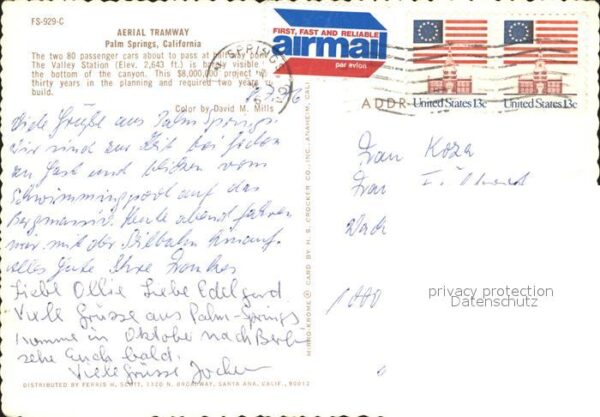 FS-929-C
AERIAL TRAMWAY
Palm Springs, California
The two 80 passenger cars about to pass at halfway point.
The Valley Station (Elev. 2,643 ft.) is barely visible
the bottom of the canyon. This $8,000,000 project
thirty years in the planning and required two years
build.
Color by David M. Mills
FIRST, FAST AND RELIABLE
airmail
par avion
United States 13c
United States 13c
ADDR
Viele Grüße aus Palm Springs.
Wir sind zur Zeit bei
zu Gast und blicken vom
Schwimmingpool auf das
Bergmassiv. Heute abend fahren
wir mit der Seilbahn hinauf.
Alles Gute Ihre
Liebe Ollie Liebe Edelgard.
Viele Grüsse aus Palm-Springs
komme in Oktober nach Berlin
sehe Euch bald.
Viele Grüsse Jochen
Frau Koza
Frau
1000
privacy protection
Datenschutz
MIRRO-KROME® CARD BY H. S. CROCKER CO., INC. ANAHEIM, CAL
DISTRIBUTED BY FERRIS H. SCOTT, 1320 N. BROADWAY, SANTA ANA, CALIF.